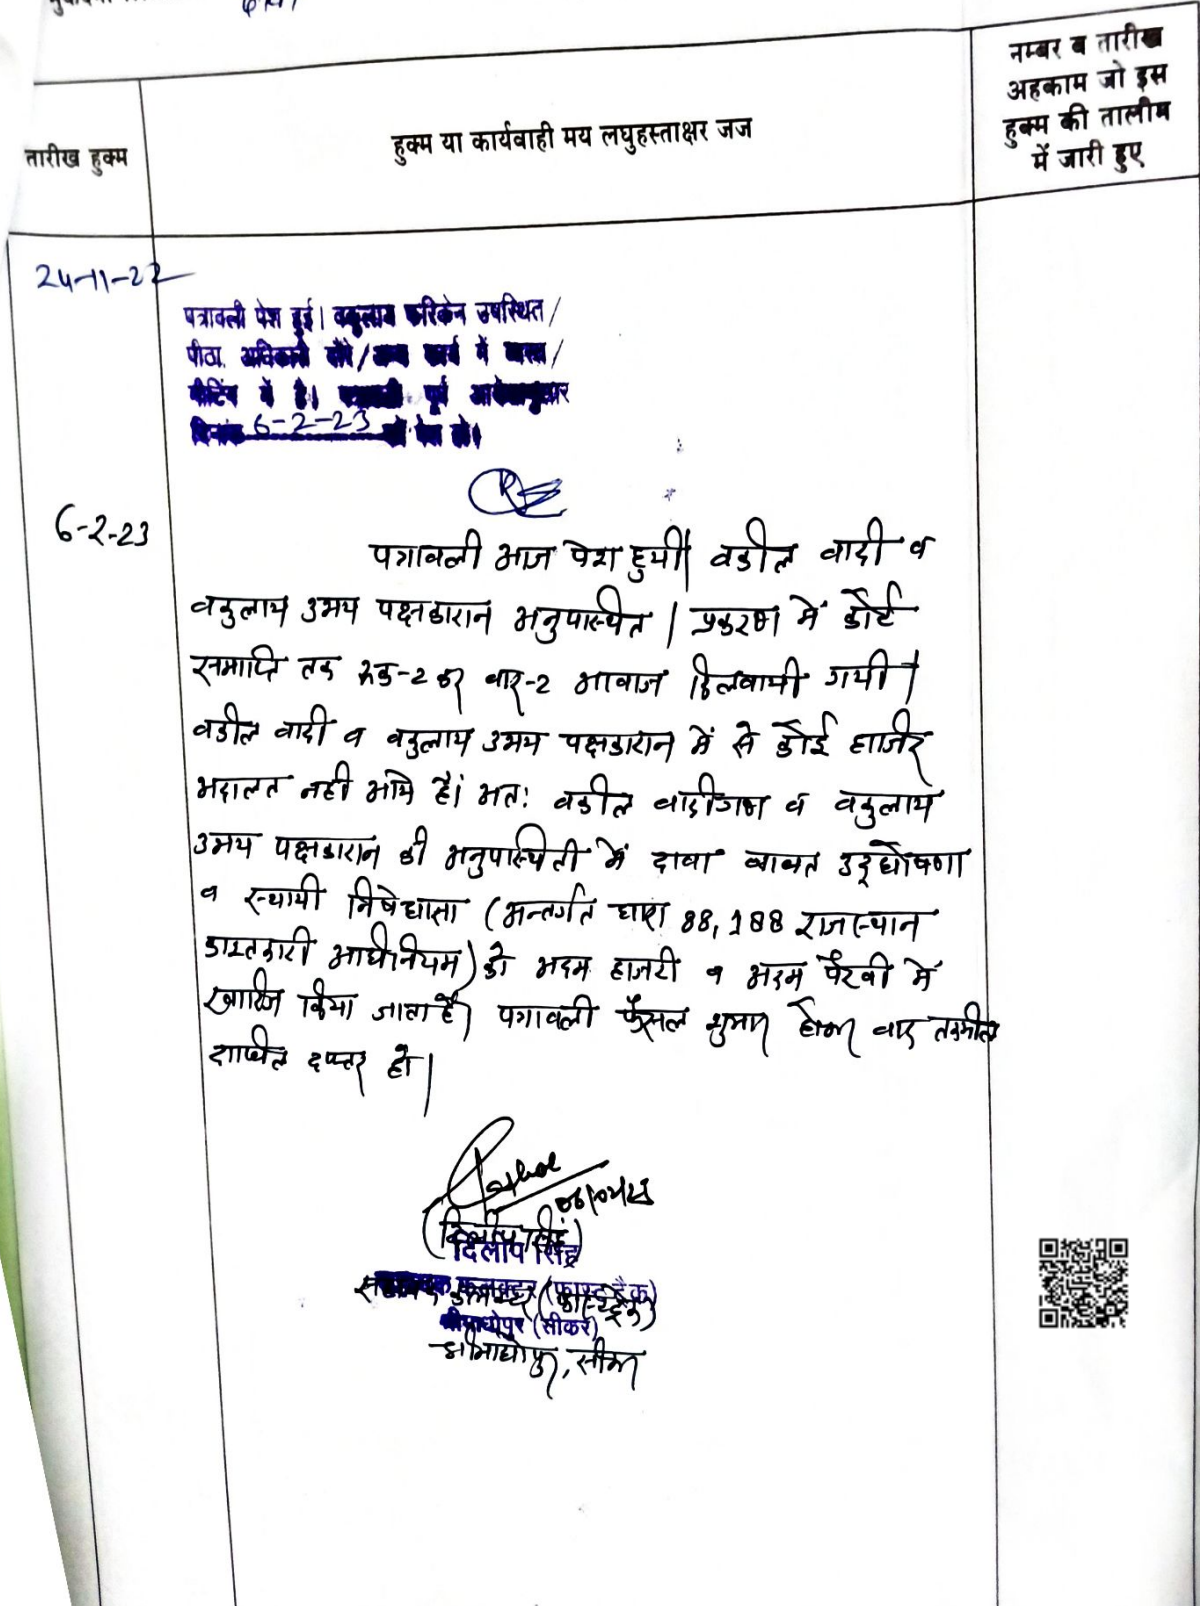 नम्बर व तारीख
अहकाम जो इस
हुक्म की तालीम
में जारी हुए
तारीख हुक्म
हुक्म या कार्यवाही मय लघुहस्ताक्षर जज
24-11-22
पत्रावली पेश हुई। वकुलाय फरिकेन उपस्थित/
पीठा. अधिकारी दौरे/अन्य कार्य में व्यस्त/
मीटिंग में है। पत्रावली पूर्व आदेशानुसार
दिनांक 6-2-23 को पेश हो।
6-2-23
पत्रावली आज पेश हुयी। वकील वादी व
वकुलाय उभय पक्षकारान अनुपस्थित। प्रकरण में कोर्ट
समाप्ति तक रूक-2 कर बार-2 आवाज दिलवायी गयी।
वकील वादी व वकुलाय उभय पक्षकारान में से कोई हाजिर
अदालत नही आये है। अतः वकील वादीगण व वकुलाय
उभय पक्षकारान की अनुपस्थिती में दावा बाबत उद्घोषणा
व स्थायी निषेधाज्ञा (अन्तर्गत धारा 88, 188 राजस्थान
काश्तकारी अधिनियम) को अदम हाजरी व अदम पैरवी में
खारिज किया जाता है। पत्रावली फैसल शुमार होकर बाद तकमील
दाखिल दफ्तर हो।
06/02/23
(दिलीप सिंह)
दिलीप सिंह
सहायक कलक्टर (फास्ट ट्रैक)
सहायक कलक्टर (फास्ट ट्रैक)
श्रीमाधोपुर (सीकर)
श्रीमाधोपुर, सीकर